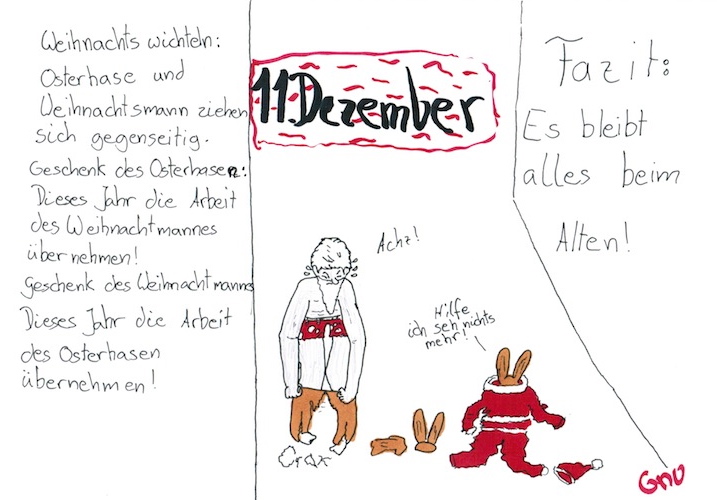 Weihnachts wichteln:
Osterhase und
Weihnachtsmann ziehen
sich gegenseitig.
Geschenk des Osterhasen:
Dieses Jahr die Arbeit
des Weihnachtmannes
übernehmen!
Geschenk des Weihnachtmanns
Dieses Jahr die Arbeit
des Osterhasen
übernehmen!
11.Dezember
Achz!
Hilfe
ich seh nichts
mehr!
Crax
Fazit:
Es bleibt
alles beim
Alten!
Gnu